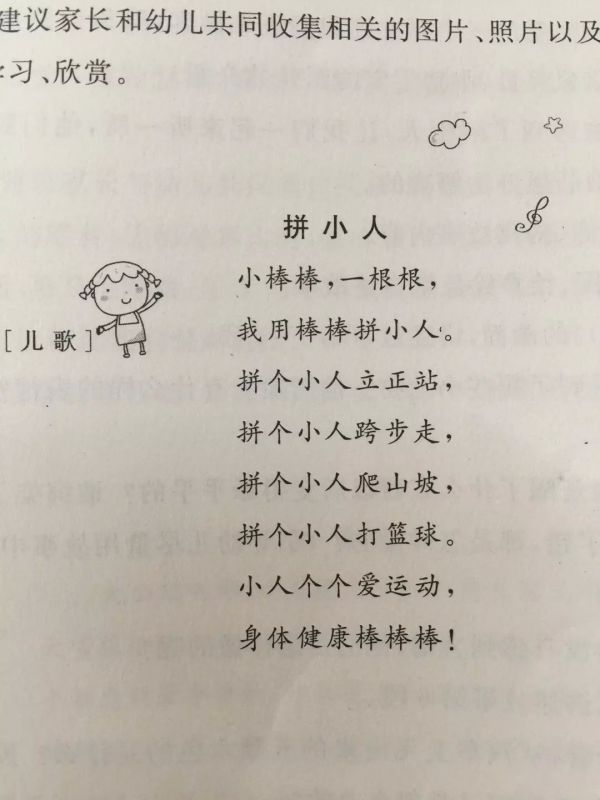 建议家长和幼儿共同收集相关的图片、照片以及
学习、欣赏。
拼小人
小棒棒，一根根，
我用棒棒拼小人。
[儿歌]
拼个小人立正站，
拼个小人跨步走，
拼个小人爬山坡，
拼个小人打篮球。
小人个个爱运动，
身体健康棒棒棒！